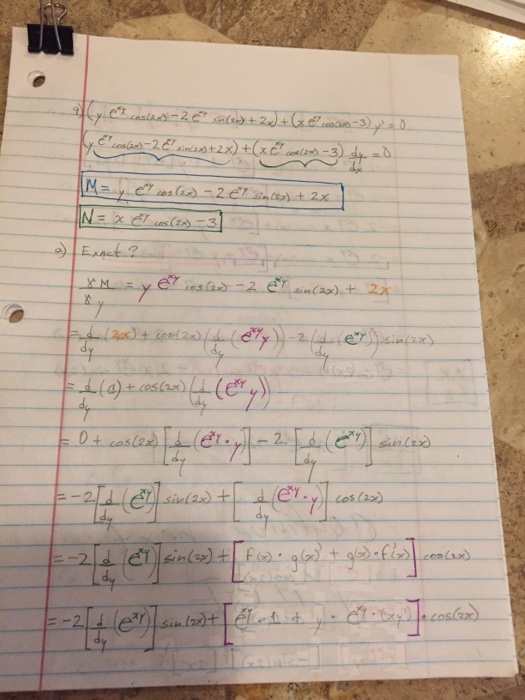 9) (y e^{xy} cos(2x) - 2 e^{xy} sin(2x) + 2x) + (x e^{xy} cos(2x) - 3) y' = 0
(y e^{xy} cos(2x) - 2 e^{xy} sin(2x) + 2x) + (x e^{xy} cos(2x) - 3) dy/dx = 0
M = y e^{xy} cos(2x) - 2 e^{xy} sin(2x) + 2x
N = x e^{xy} cos(2x) - 3
a) Exact?
M / y = y e^{xy} cos(2x) - 2 e^{xy} sin(2x) + 2x
= d/dy (2x) + cos(2x) (d/dy (e^{xy} y)) - 2 (d/dy (e^{xy})) sin(2x)
= d/dy (0) + cos(2x) (d/dy (e^{xy} y))
= 0 + cos(2x) [d/dy (e^{xy} · y)] - 2 [d/dy (e^{xy})] sin(2x)
= -2 [d/dy (e^{xy})] sin(2x) + [d/dy (e^{xy} · y)] cos(2x)
= -2 [d/dy (e^{xy})] sin(2x) + [f(x) · g(x)' + g(x) · f'(x)] cos(2x)
= -2 [d/dy (e^{xy})] sin(2x) + [e^{xy} · 1 + y · e^{xy} · (xy)'] · cos(2x)